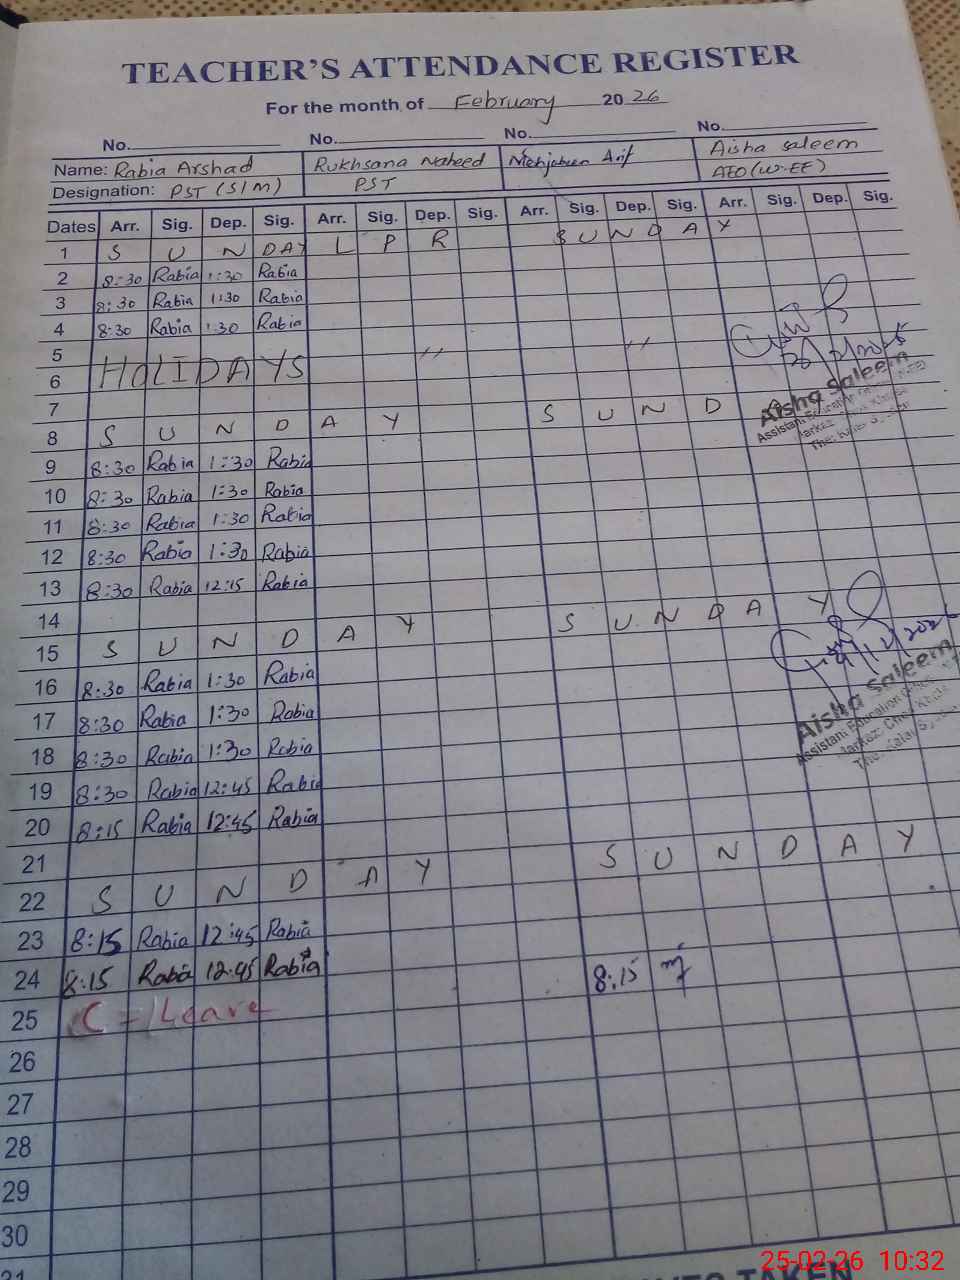 TEACHER'S ATTENDANCE REGISTER
For the month of February 2026
No. No. No. No.
Name: Rabia Arshad Rukhsana Naheed Mehjabeen Arif Aisha Saleem
Designation: PST (S/m) PST AEO (W-EE)
Dates Arr. Sig. Dep. Sig. Arr. Sig. Dep. Sig. Arr. Sig. Dep. Sig. Arr. Sig. Dep. Sig.
1 S U N DAY L P R S U N D A Y
2 8:30 Rabia 1:30 Rabia
3 8:30 Rabia 1:30 Rabia
4 8:30 Rabia 1:30 Rabia
5 HOLIDAYS " "
6
7
8 S U N D A Y S U N D
9 8:30 Rabia 1:30 Rabia
10 8:30 Rabia 1:30 Rabia
11 8:30 Rabia 1:30 Rabia
12 8:30 Rabia 1:30 Rabia
13 8:30 Rabia 12:15 Rabia
14
15 S U N D A Y S U N D A Y
16 8:30 Rabia 1:30 Rabia
17 8:30 Rabia 1:30 Rabia
18 8:30 Rabia 1:30 Rabia
19 8:30 Rabia 12:45 Rabia
20 8:15 Rabia 12:45 Rabia
21
22 S U N D A Y S U N D A Y
23 8:15 Rabia 12:45 Rabia
24 8:15 Rabia 12:45 Rabia 8:15
25 C = Leave
26
27
28
29
30
31
Aisha Saleem
Assistant Education
Markaz
Aisha Saleem
Assistant Education
Markaz
TAKEN
25-02-26 10:32